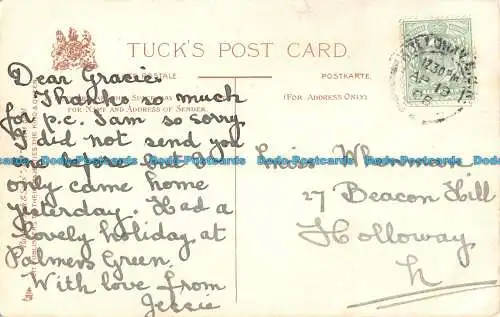 TUCK'S POST CARD.
POSTKARTE.
(FOR ADDRESS ONLY).
FOR NAME AND ADDRESS OF SENDER.
Dear Gracie.
Thanks so much
for p.c. I am so sorry
I did not send you
one before but I
only came home
yesterday. Had a
lovely holiday at
Palmers Green.
With love from
Jessie
12.30 PM
AP 13
08
Miss Whenman
27 Beacon Hill
Holloway
N
Dodo-Postcards Dodo-Postcards Dodo-Postcards Dodo-Postcards